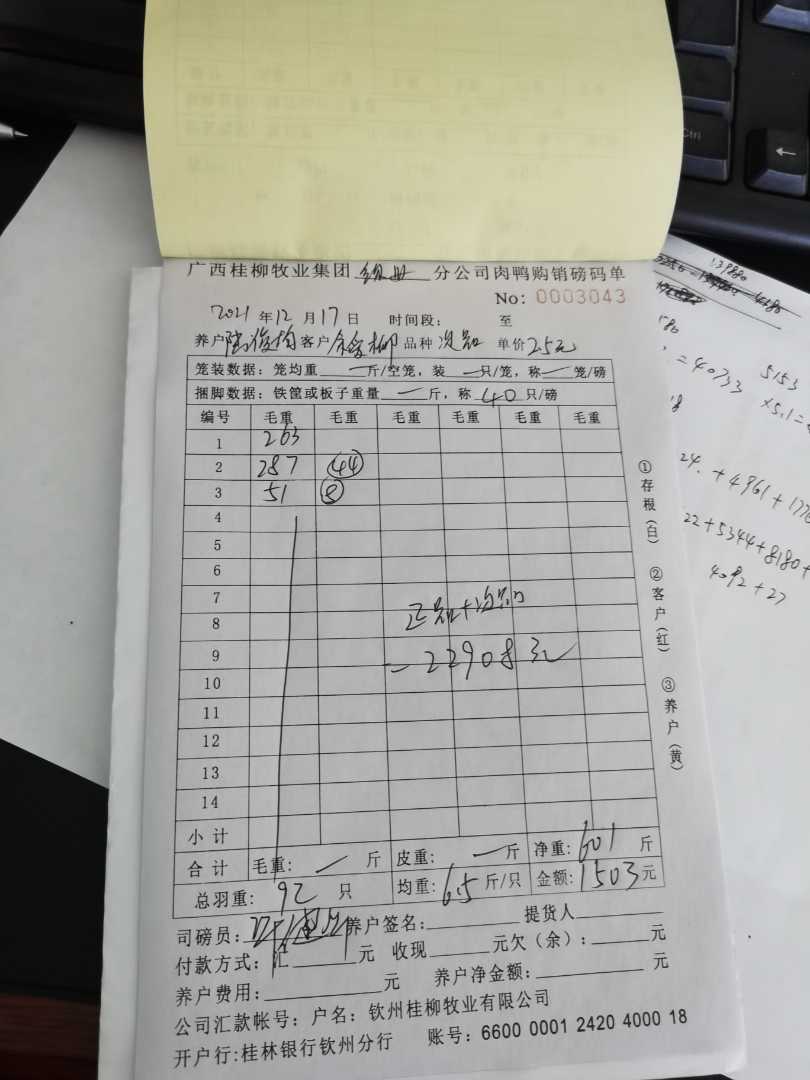 广西桂柳牧业集团 分公司肉鸭购销磅码单
No: 0003043
2021年12月17日 时间段: 至
养户 客户 品种 次品 单价2.5元
笼装数据: 笼均重 一 斤/空笼, 装 一 只/笼, 称 一 笼/磅
捆脚数据: 铁筐或板子重量 一 斤, 称 40 只/磅
编号 毛重 毛重 毛重 毛重 毛重 毛重
1 263
2 287 44
3 51 8
4
5
6
7
8 正品+次品
9 =22908元
10
11
12
13
14
小计
合计 毛重: 一 斤 皮重: 一 斤 净重: 601 斤
总羽重: 92 只 均重: 6.5 斤/只 金额: 1503元
司磅员: 养户签名: 提货人
付款方式: 汇 元 收现 元欠(余): 元
养户费用: 元 养户净金额: 元
公司汇款帐号: 户名: 钦州桂柳牧业有限公司
开户行:桂林银行钦州分行 账号: 6600 0001 2420 4000 18
①存根(白) ②客户(红) ③养户(黄)
Ctrl
←
139880
=40733
5153
×5.1=
24. +4961+177
22+5344+8180+
4092+27